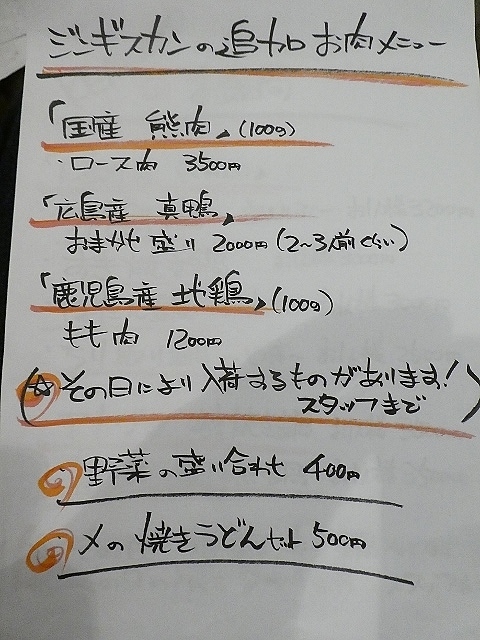 ジンギスカンの追加お肉メニュー
「国産 熊肉」(100g)
・ロース肉 3500円
「広島産 真鴨」
おまかせ盛り 2000円(2~3人前ぐらい)
「鹿児島産 地鶏」(100g)
もも肉 1200円
(☆その日により入荷するものがあります!
スタッフまで)
野菜の盛り合わせ 400円
〆の焼きうどんセット 500円